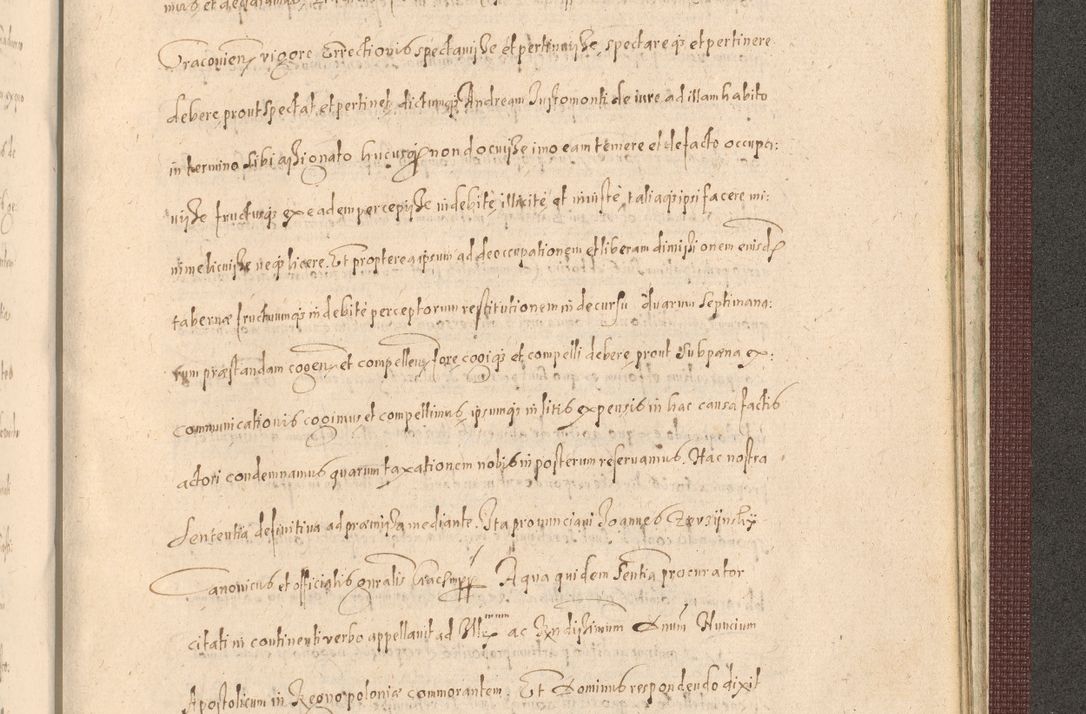 Cracovien vigore Errectionis spectavisse et pertinuisse, spectareq et pertinere
debere, prout spectat et pertinet, dictumq Andream Justomonti de iure ad illam habito
in termino sibi assignato hucusq non docuisse imo eam temere et de facto occupa:
visse fructusq ex eadem percepisse indebite illicite et iniuste, taliaq ipsi facere mi:
nime licuisse neq licere. Et propterea ipsum ad deoccupationem et liberam dimissionem eiusd
tabernæ fructuumq indebite perceptorum restitutionem in decursu duarum Septimana:
rum præstandam cogen et compellen fore cogiq et compelli debere, prout sub pæna ex:
communicationis cogimus et compellimus, ipsumq in litis expensis in hac causa factis
actori condemnamus quarum taxationem nobis in posterum reservamus. Hac nostra
sententia definitiva ad præmissa mediante. Ita pronunciavi Joannes
Canonicus et officialis gnralis Crac A qua quidem sentia procurator
citati in continenti verbo appellavit ad Ill ac Rndissimum Dnum Nuncium
Apostolicum in Regno poloniæ commorantem. Et Dominus respondendo dixit